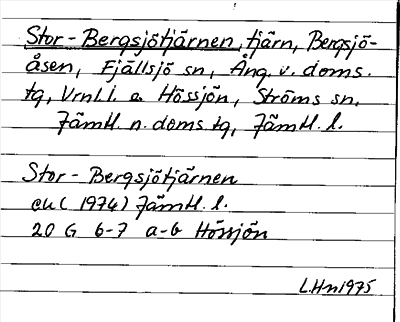 Stor-Bergsjötjärnen, tjärn, Bergsjö-
åsen, Fjällsjö sn, Ång. v. doms.
tg, Vrnl. l. a Hössjön, Ströms sn.
Jämtl. n. doms. tg, Jämtl. l.
Stor-Bergsjötjärnen
ek (1974) Jämtl. l.
20 G 6-7 a-b Hössjön
L.Hn1975